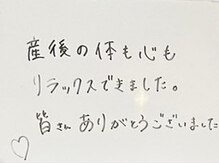 産後の体も心も
リラックスできました。
皆さんありがとうございました